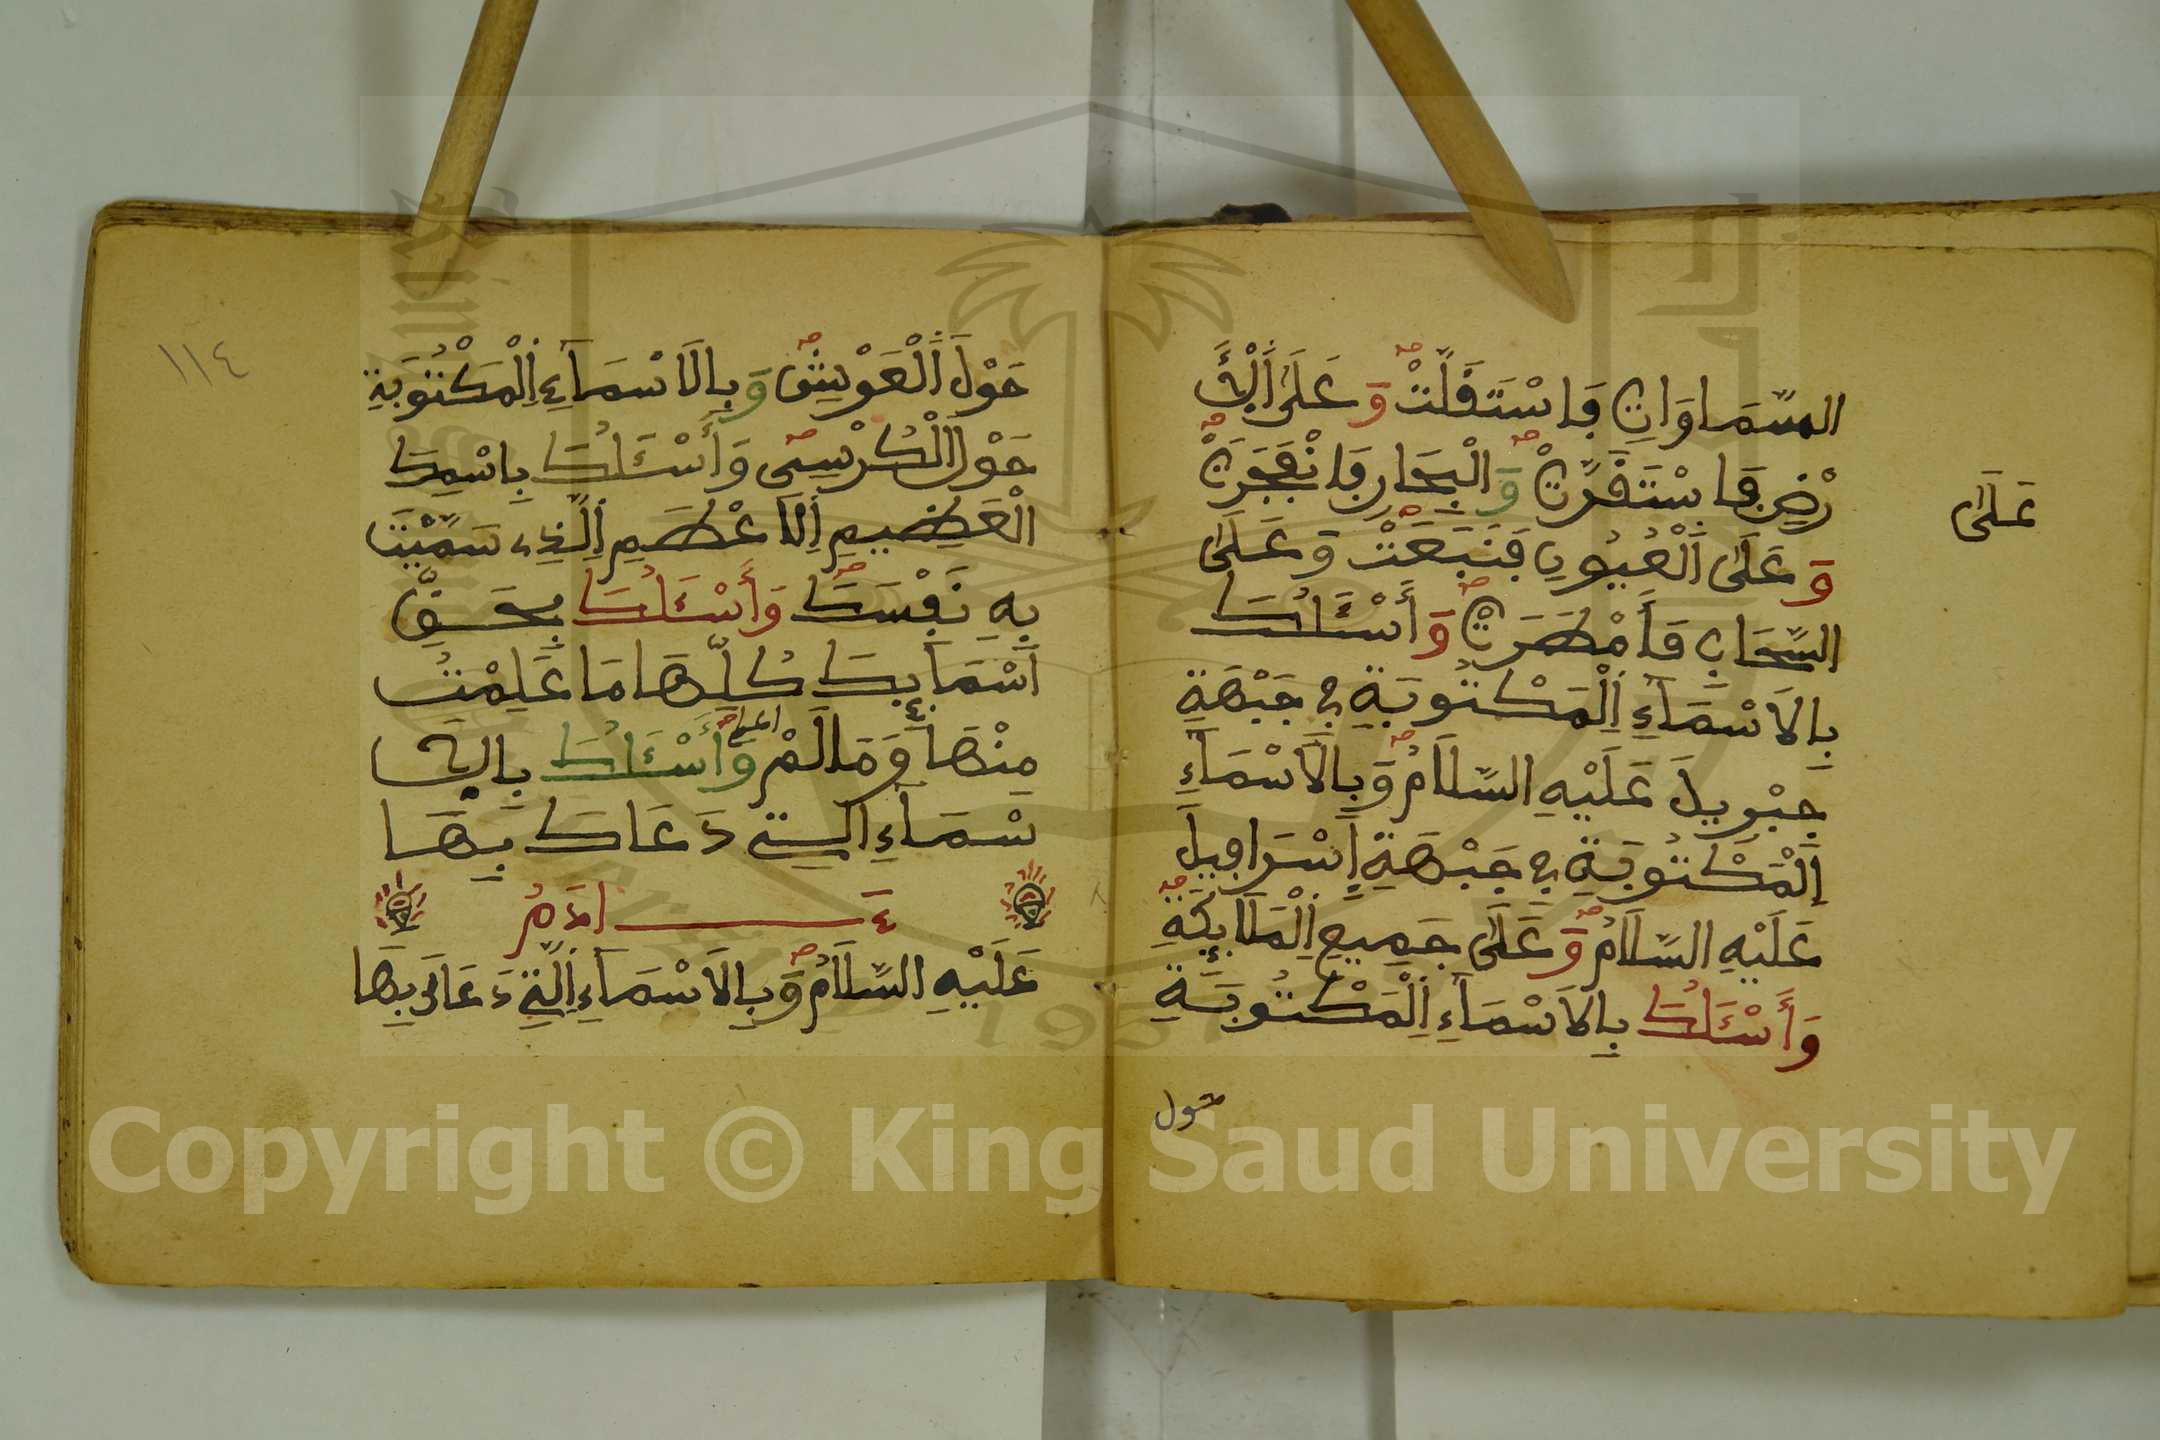 السَّمَاوَاتِ فَاسْتَقَلَّتْ وَعَلَى اَلْأَ
رْضِ فَاسْتَقَرَّتْ وَالْبِحَارِ فَانْفَجَرَتْ
عَلَى
وَعَلَى اَلْعُيُونِ فَنَبَعَتْ وَعَلَى
السَّحَابِ فَأَمْطَرَتْ وَأَسْئَلُكَ
بِالاَسْمَآءِ اِلْمَكْتُوبَةِ فِي جَبْهَةِ
جِبْرِيلَ عَلَيْهِ السَّلَامُ وَبِالَاسْمَآءِ
اِلْمَكْتُوبَةِ فِي جَبْهَةِ إِسْرَافِيلَ
عَلَيْهِ السَّلَامُ وَعَلَى جَمِيعِ اِلْمَلَائِكَةِ
وَأَسْئَلُكَ بِالاَسْمَآءِ اِلْمَكْتُوبَةِ
حول
١١٤
حَوْلَ اَلْعَرْشِ وَبِالَاسْمَآءِ اِلْمَكْتُوبَةِ
حَوْلَ الْكُرْسِي وَأَسْئَلُكَ بِاسْمِكَ
الْعَظِيمِ اِلَاعْظَمِ اِلَّذِي سَمَّيْتَ
بِهِ نَفْسَكَ وَأَسْئَلُكَ بِحَقِّ
أَسْمَآئِكَ كُلِّهَا مَا عَلِمْتُ
مِنْهَا وَمَالَمْ اعلم وَأَسْئَلُكَ بِالَا
سْمَآءِ الَّتِي دَعَاكَ بِهَا
ءَادَمُ
عَلَيْهِ السَّلَامُ وَبِالَاسْمَآءِ اِلَّتِي دَعَاكَ بِهَا
Copyright © King Saud University
1957